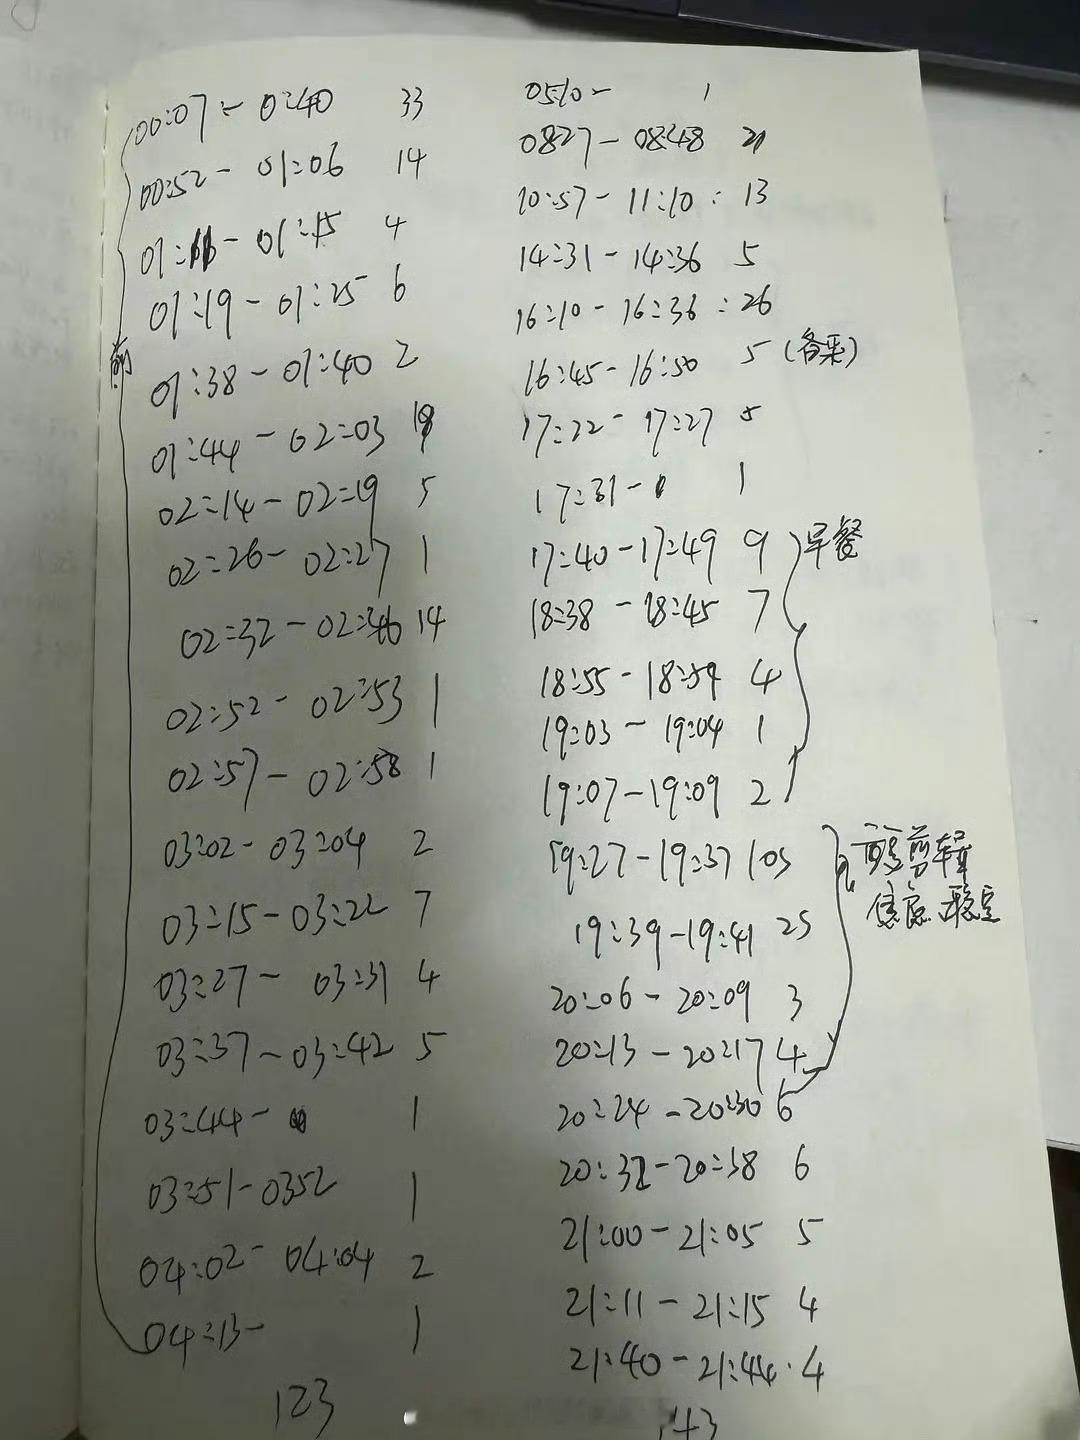 00:07 - 0:40 33
00:52 - 01:06 14
01:11 - 01:15 4
01:19 - 01:25 6
前
01:38 - 01:40 2
01:44 - 02:03 19
02:14 - 02:19 5
02:26 - 02:27 1
02:32 - 02:46 14
02:52 - 02:53 1
02:57 - 02:58 1
03:02 - 03:04 2
03:15 - 03:22 7
03:27 - 03:31 4
03:37 - 03:42 5
03:44 - 1
03:51 - 0352 1
04:02 - 04:04 2
04:13 - 1
123
0510 - 1
0827 - 08:48 21
10:57 - 11:10 : 13
14:31 - 14:36 5
16:10 - 16:36 : 26
16:45 - 16:50 5 (备采)
17:22 - 17:27 5
17:31 - 1
17:40 - 17:49 9 早餐
18:38 - 18:45 7
18:55 - 18:59 4
19:03 - 19:04 1
19:07 - 19:09 2
19:27 - 19:37 10s 剪辑
19:39 - 19:41 2s
20:06 - 20:09 3
20:13 - 20:17 4
20:24 - 20:30 6
20:32 - 20:38 6
21:00 - 21:05 5
21:11 - 21:15 4
21:40 - 21:44 . 4
143